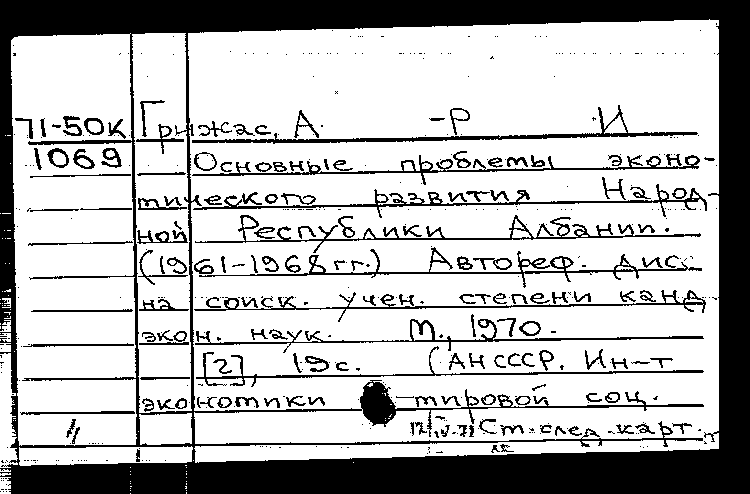 71-50к Грижас, А. -Р И
1069 Основные проблемы эконо-
мического развития Народ-
ной Республики Албании.
(1961-1968 гг.) Автореф. дисс
на соиск. учен. степени канд
экон. наук. М., 1970.
[2], 19 с. (АН СССР. Ин-т
экономики мировой соц.
Ст. след. карт.